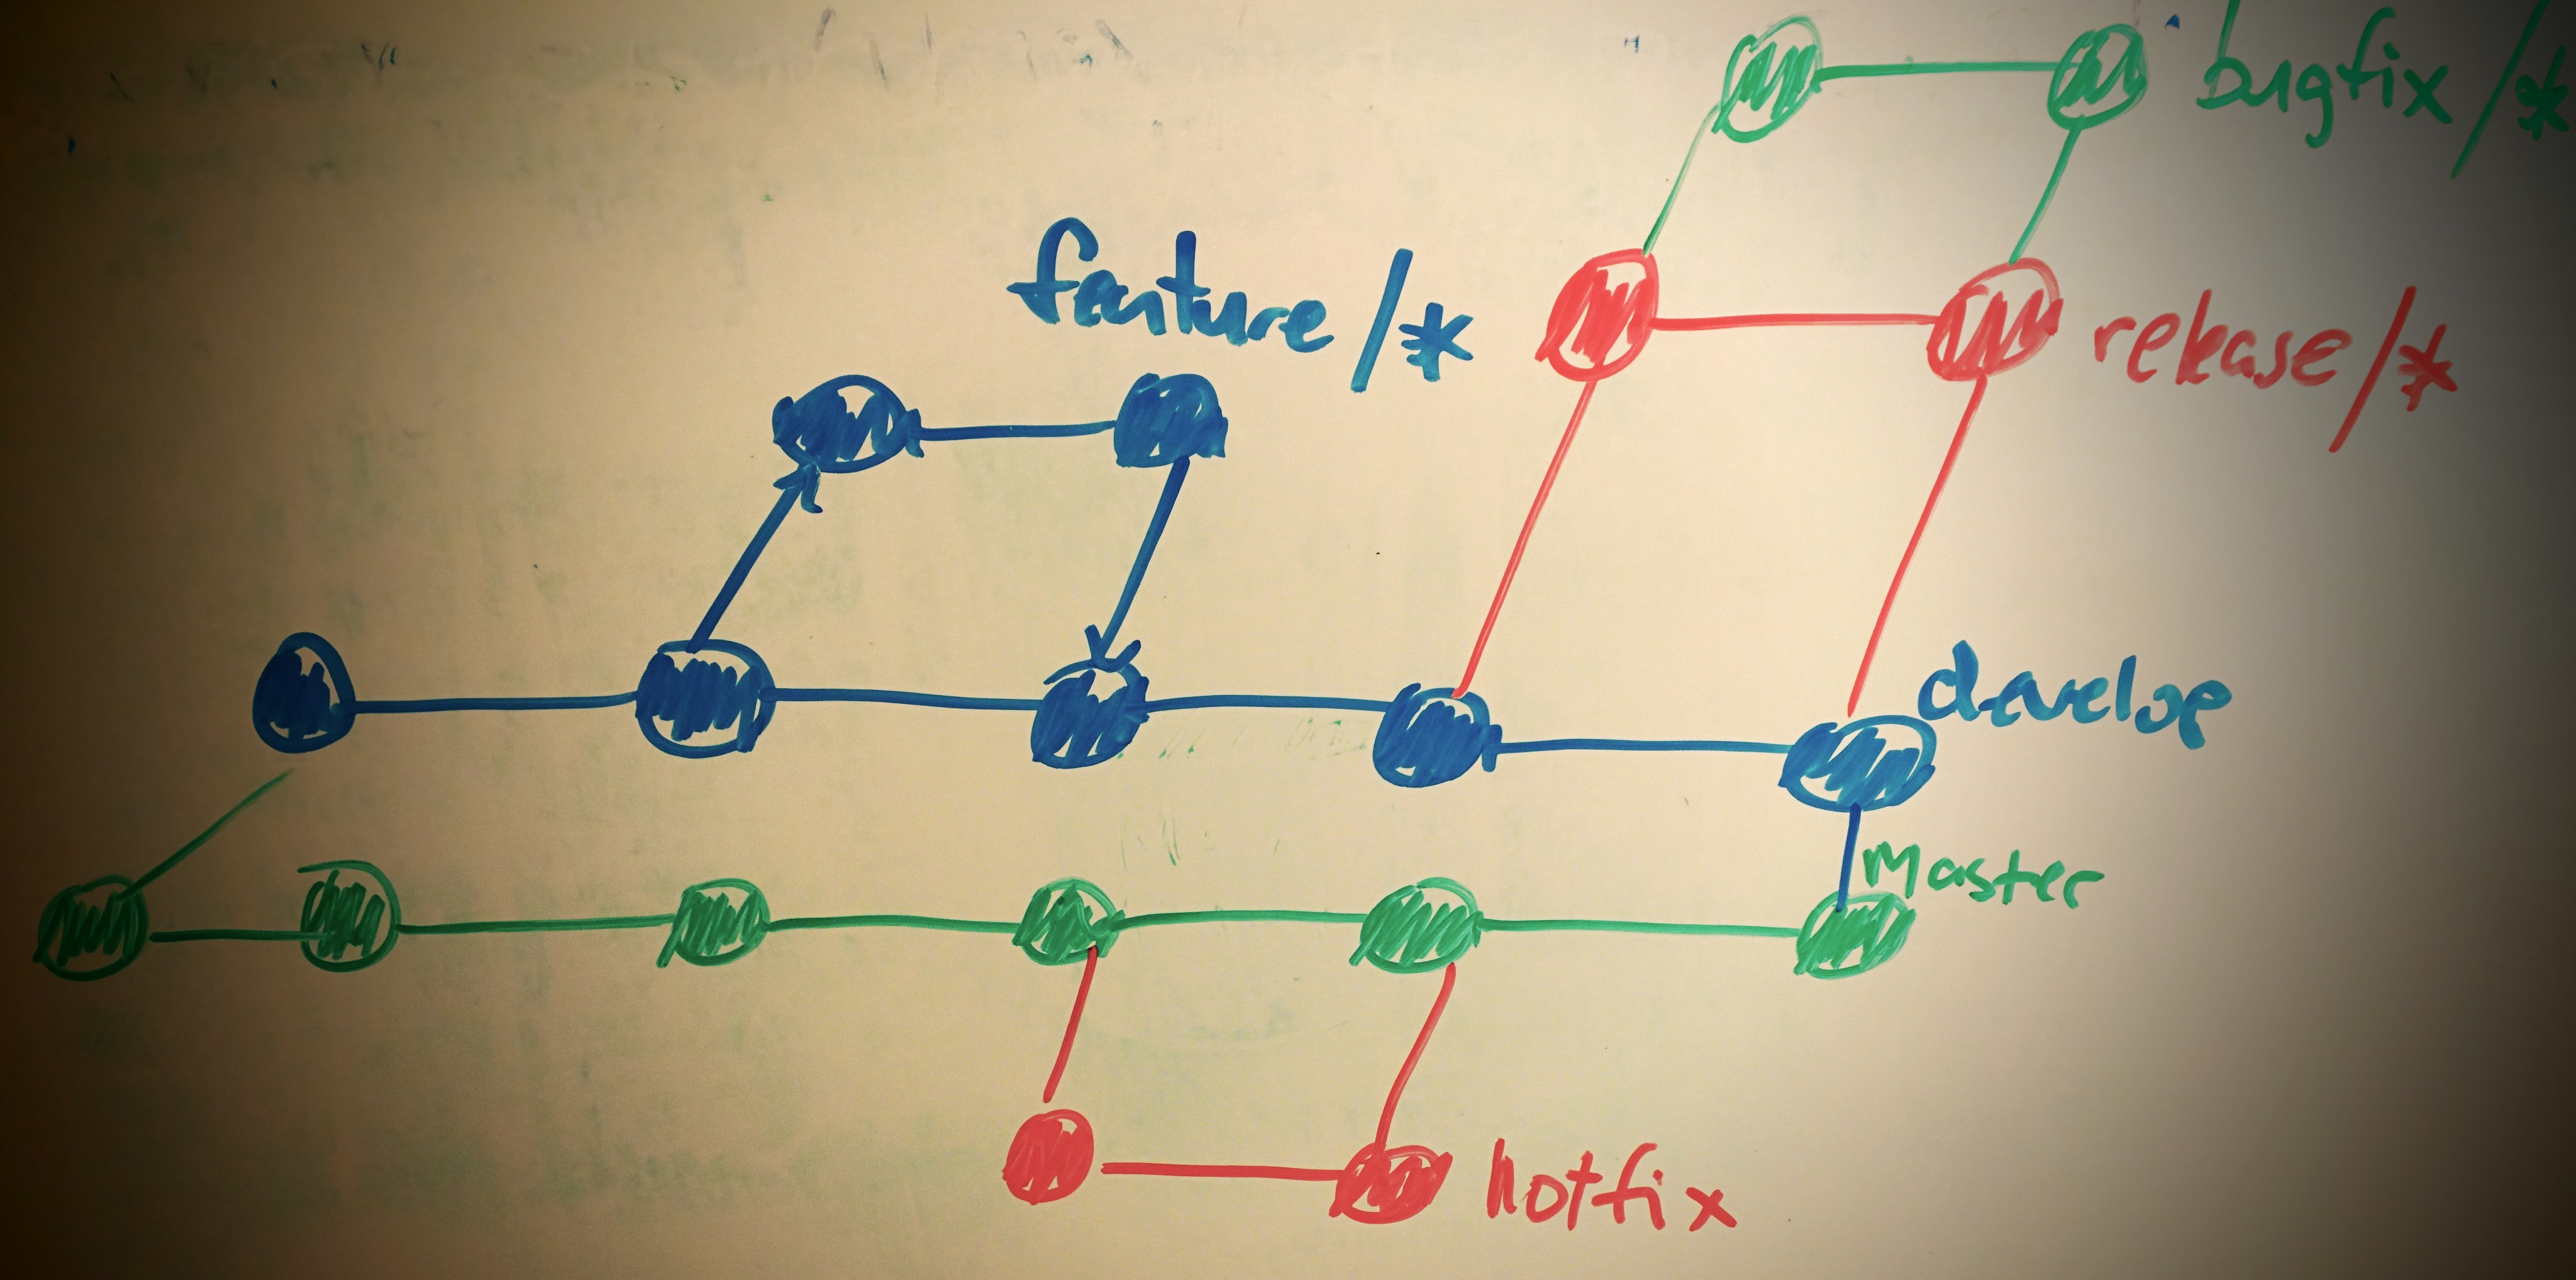 bugfix/*
feature/*
release/*
develop
Master
hotfix